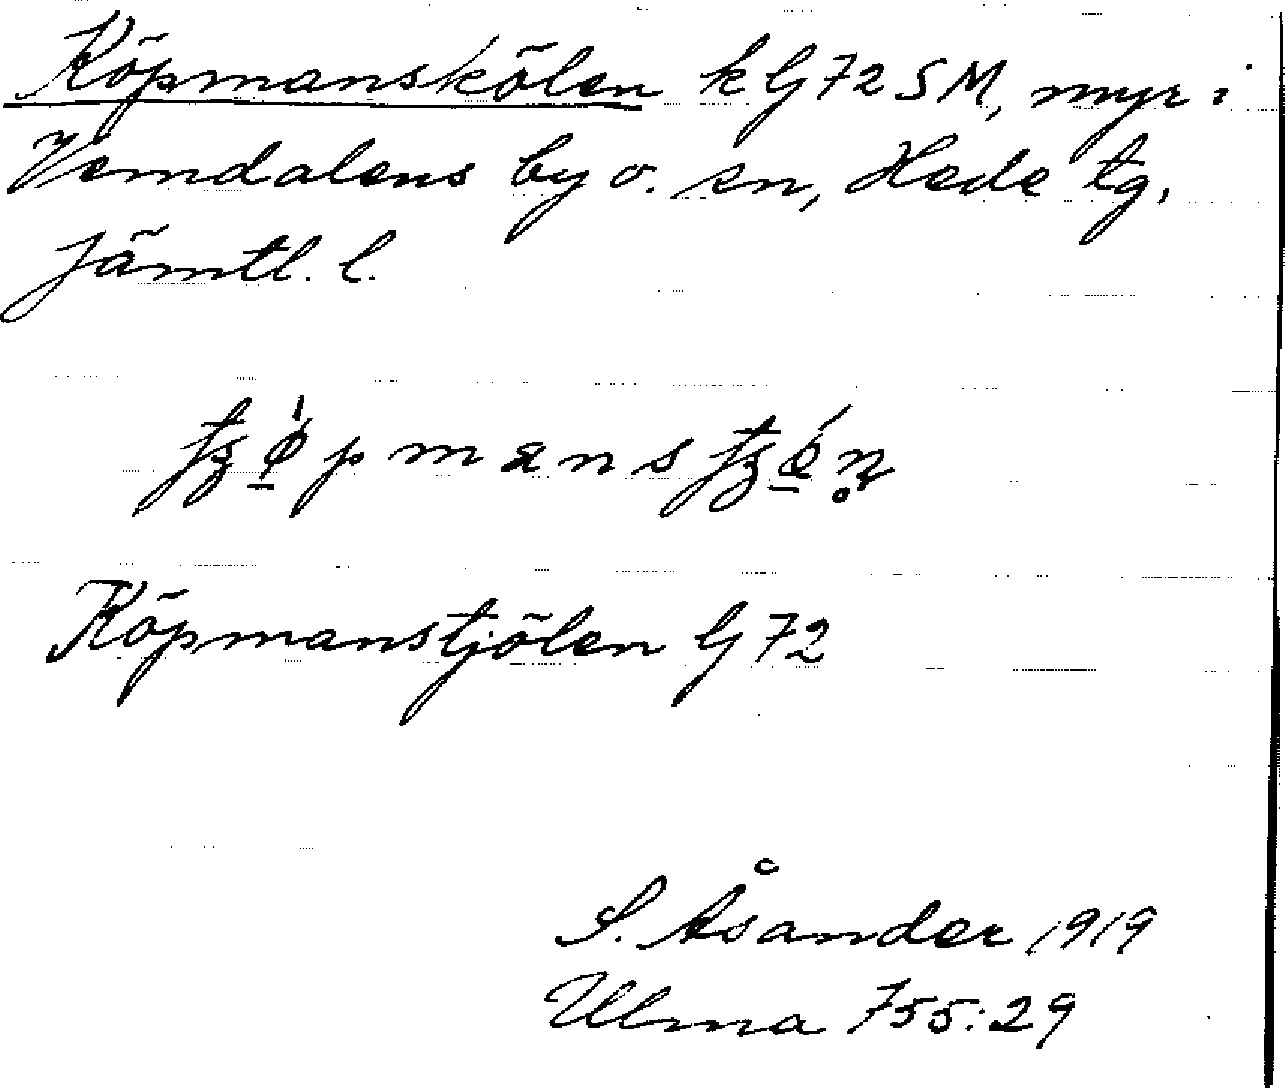 Köpmanskölen k G72 SM, myr i
Vemdalens by o. sn, Hede tg,
Jämtl. l.
Köpmanstjölen G 72
S. Åsander 1919
Ulma 755:29